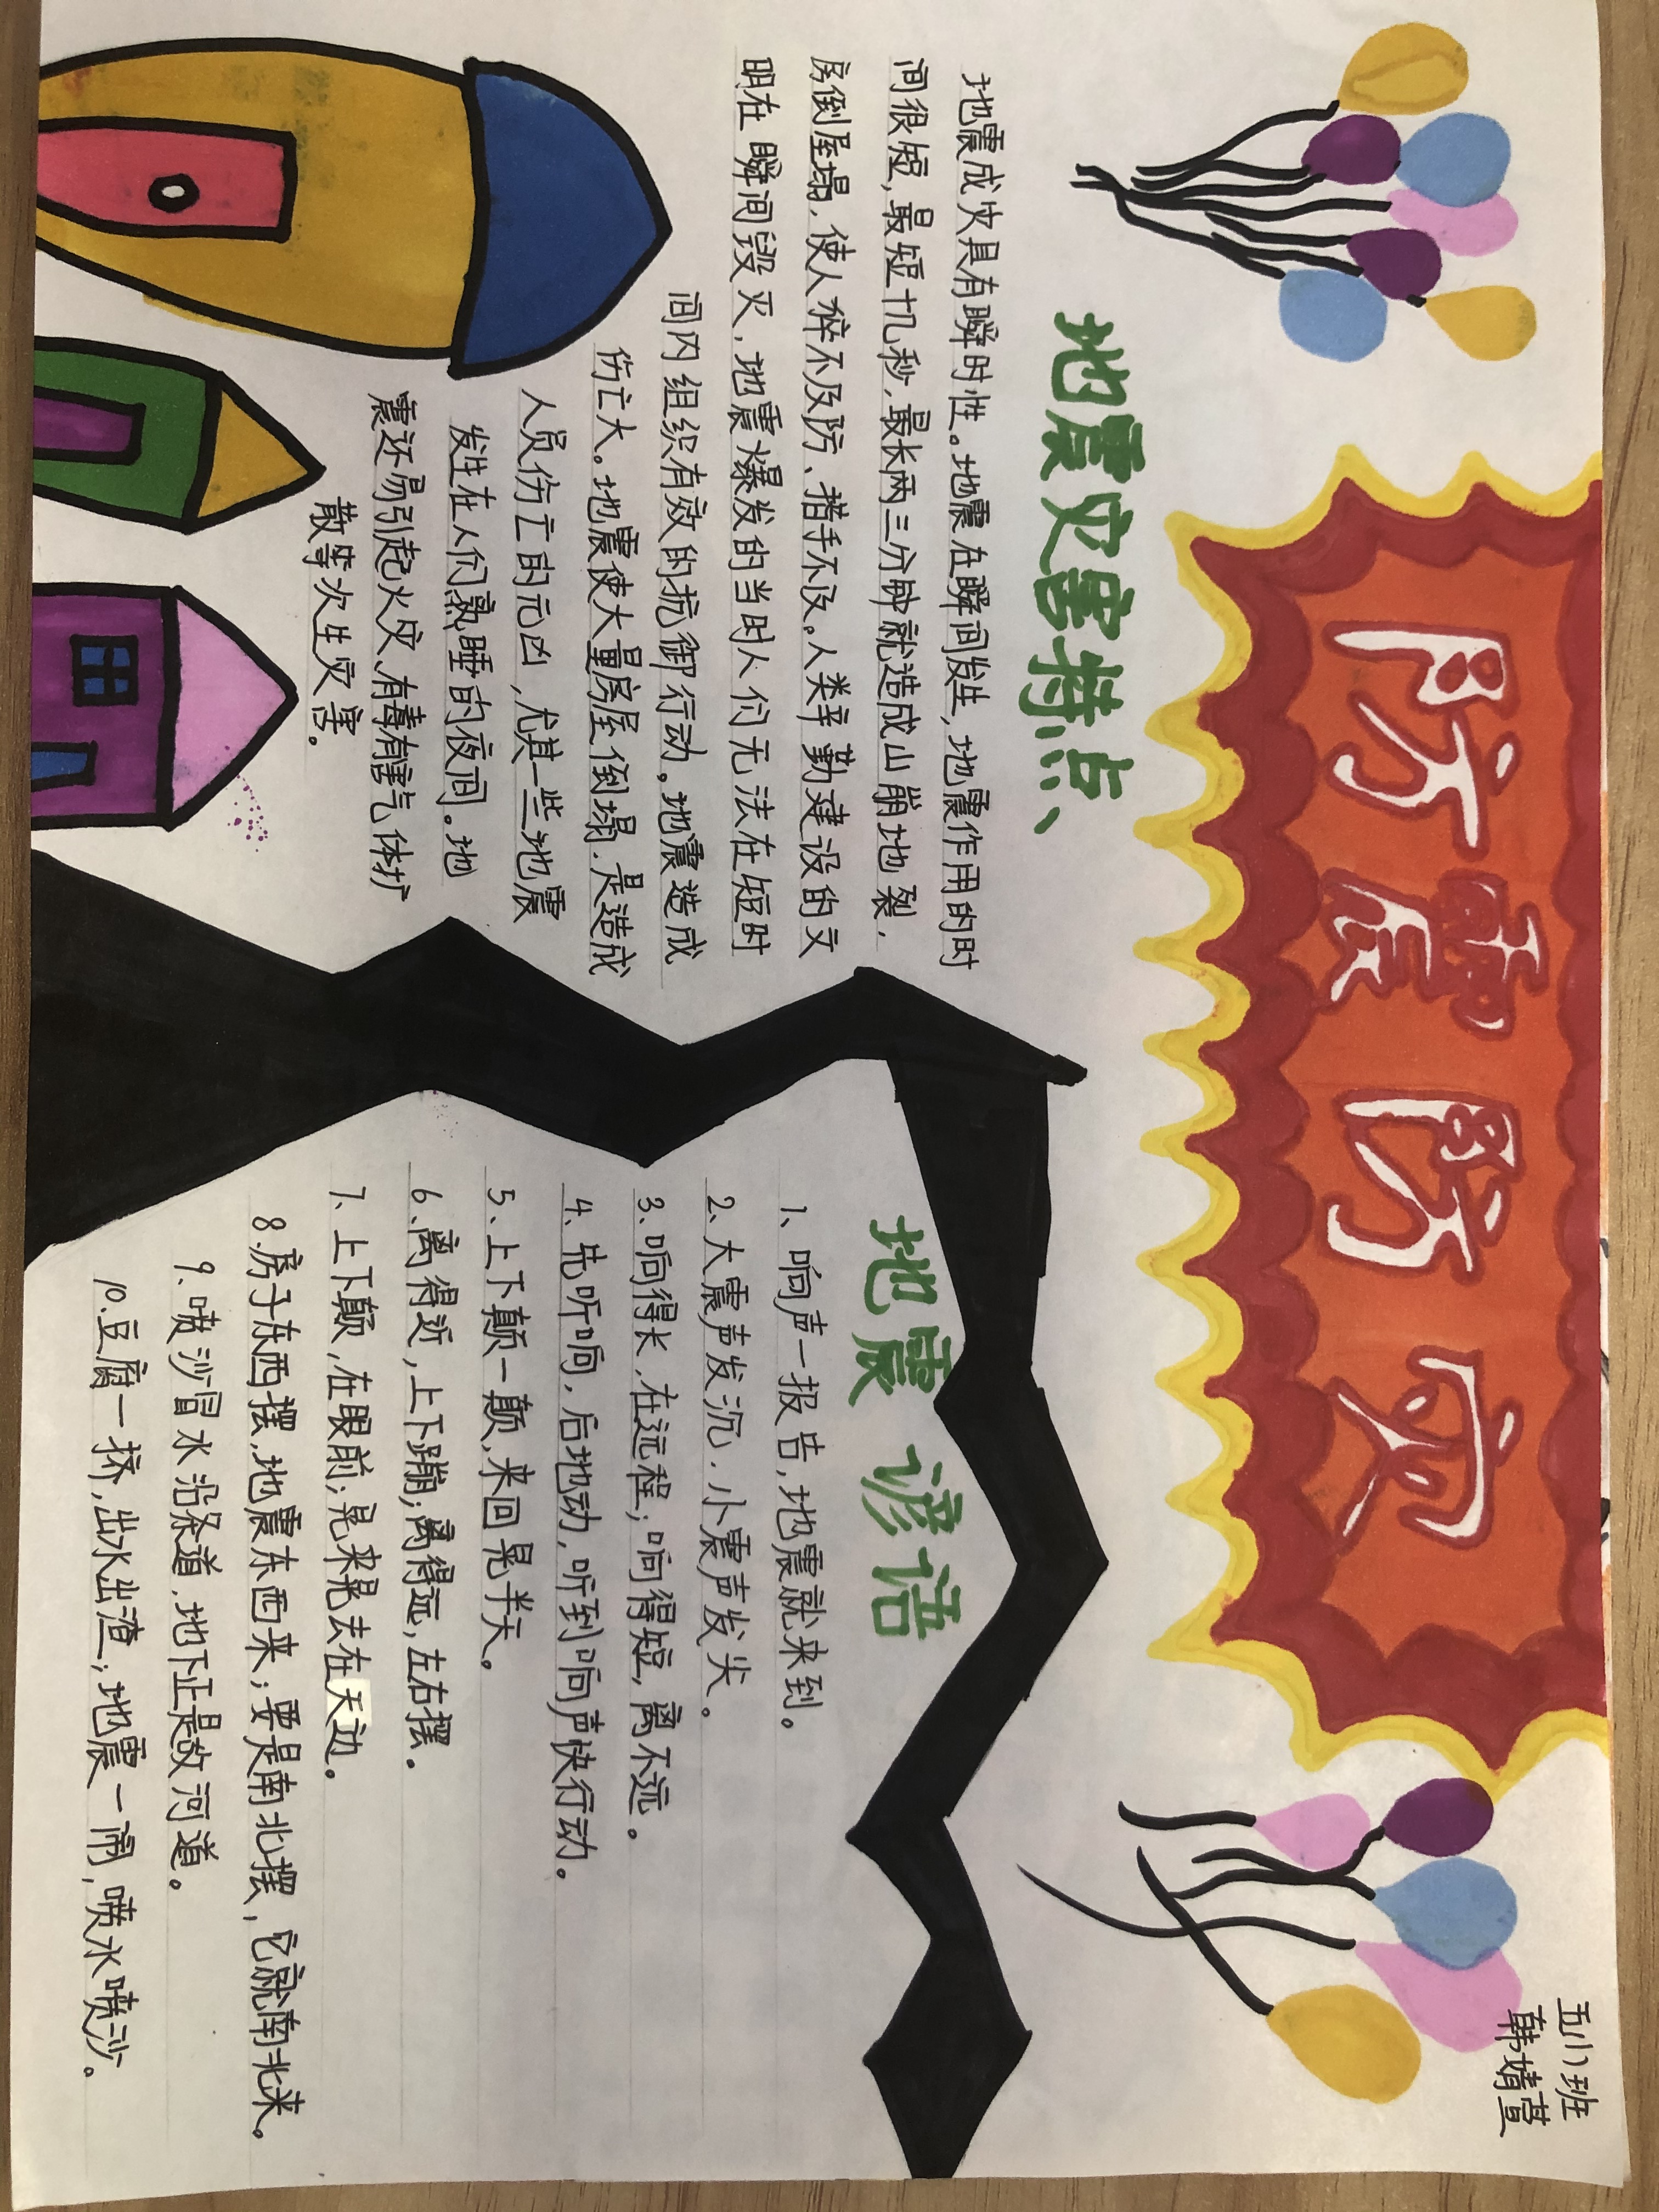 防震防灾
五(1)班
韩婧萱
地震灾害特点、
地震成灾具有瞬时性。地震在瞬间发生,地震作用的时
间很短,最短十几秒,最长两三分钟就造成山崩地裂,
房倒屋塌,使人猝不及防、措手不及。人类辛勤建设的文
明在瞬间毁灭,地震爆发的当时人们无法在短时
间内组织有效的抗御行动。地震造成
伤亡大。地震使大量房屋倒塌,是造成
人员伤亡的元凶,尤其一些地震
发生在人们熟睡的夜间。地
震还易引起火灾、有毒有害气体扩
散等次生灾害。
地震谚语
1、响声一报告,地震就来到。
2、大震声发沉,小震声发尖。
3、响得长,在远程;响得短,离不远。
4、先听响,后地动,听到响声快行动。
5、上下颠一颠,来回晃半天。
6、离得近,上下蹦;离得远,左右摆。
7、上下颠,在眼前;晃来晃去在天边。
8.房子东西摆,地震东西来;要是南北摆,它就南北来。
9、喷沙冒水沿条道,地下正是故河道。
10.豆腐一挤,出水出渣;地震一闹,喷水喷沙。